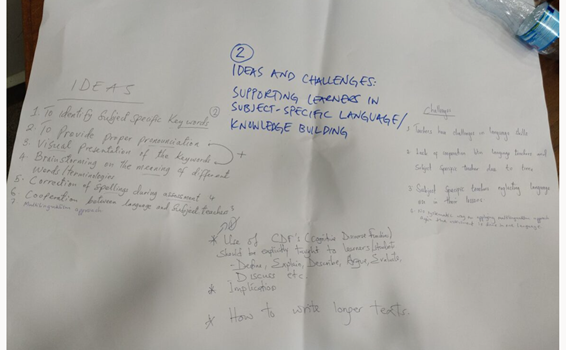 2
IDEAS AND CHALLENGES:
SUPPORTING LEARNERS IN
SUBJECT-SPECIFIC LANGUAGE/
KNOWLEDGE BUILDING
IDEAS
1. To identify Subject specific keywords
2. To Provide proper pronunciation
3. Visual Presentation of the keywords
4. Brainstorming on the meaning of different
words/terminologies
5. Correction of spellings during assessment
6 Cooperation between language and Subject teachers
7 Multilingualism approach
* Use of CDF's (Cognitive Discourse Function)
Should be explicitly taught to learners/
- Define, Explain, Describe, Argue, Evaluate,
Discuss etc.
* Implication
* How to write longer texts.
Challenges
1. Teachers has challenges in language skills
2. Lack of cooperation btw language teachers and
Subject Specific teacher due to
3. Subject Specific teachers neglecting language
use in their lessons